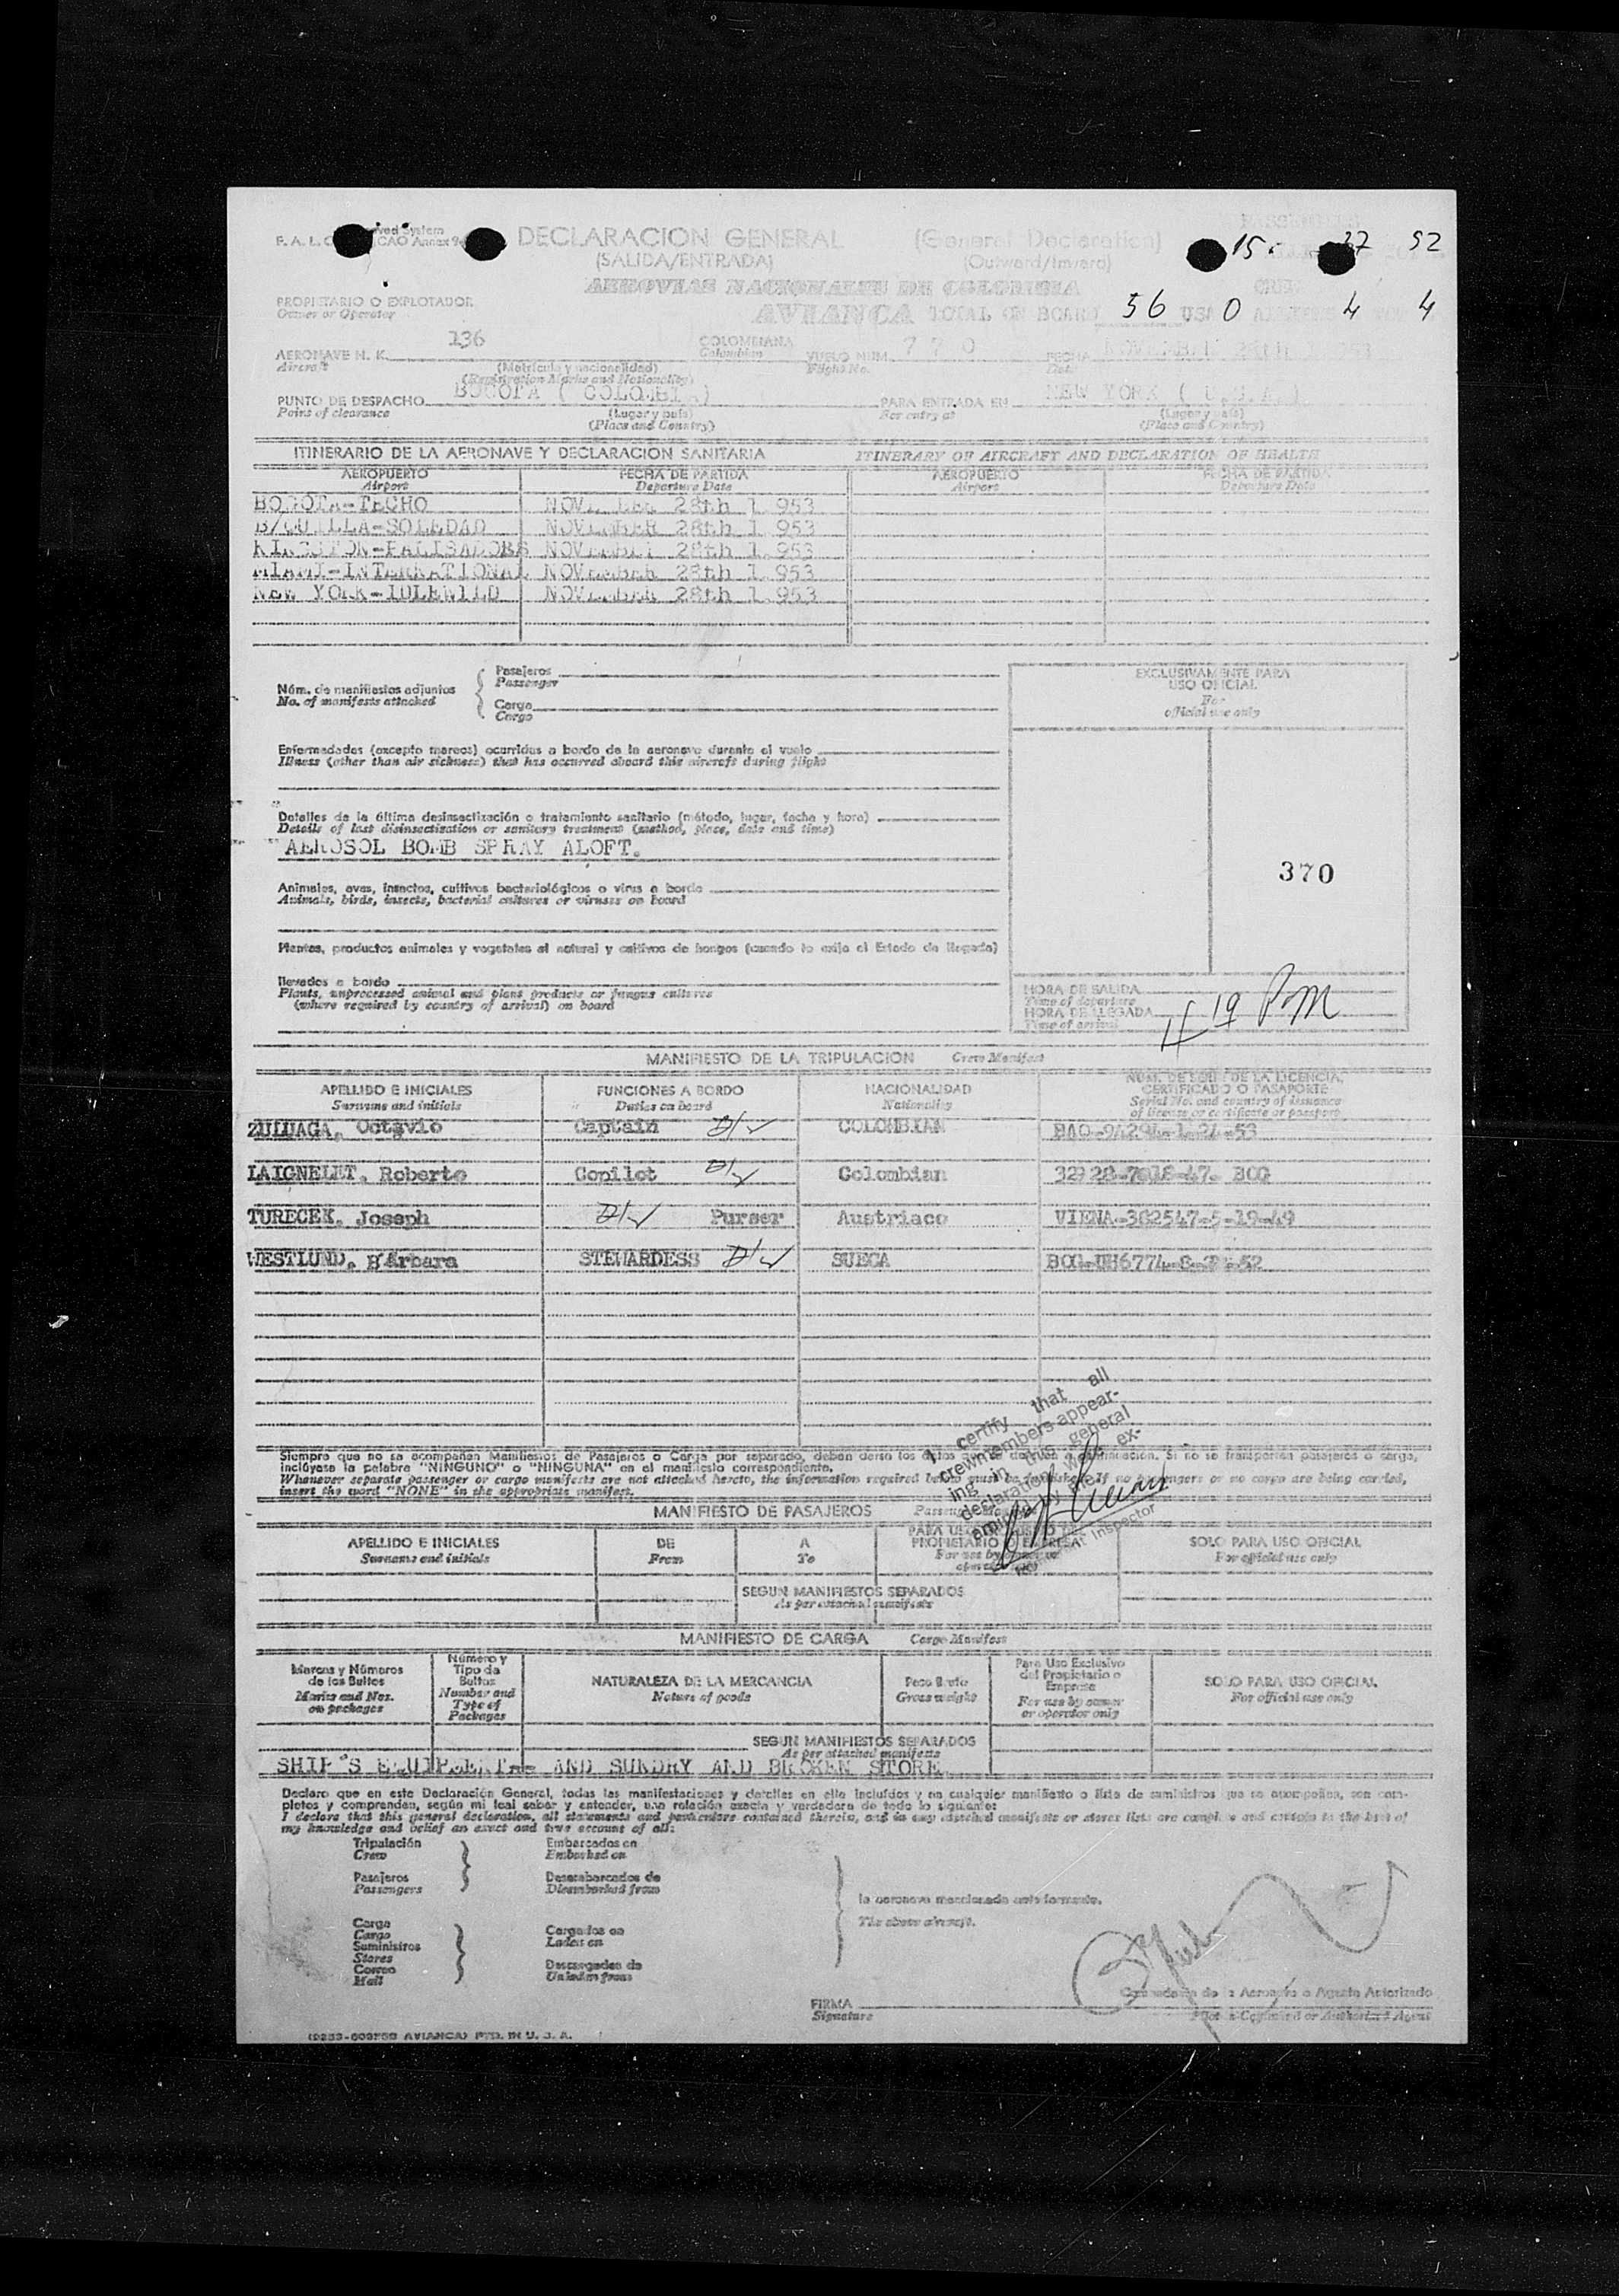 F. A. L. System
ICAO Annex 9
DECLARACION GENERAL (General Declaration)
(SALIDA/ENTRADA) (Outward/Inward)
15 37 52
AEROVIAS NACIONALES DE COLOMBIA
AVIANCA TOTAL ON BOARD 56 USA 0 4 4
PROPIETARIO O EXPLOTADOR
Owner or Operator
AERONAVE H. K. 136 COLOMBIANA VUELO NUM. 7 7 0 FECHA NOVEMBER 28th
Aircraft (Matrícula y nacionalidad) Colombian Flight No. Date
(Registration Marks and Nationality)
PUNTO DE DESPACHO BOGOTA ( COLOMBIA ) PARA ENTRADA EN NEW YORK ( U.S.A. )
Point of clearance (Lugar y país) For entry at (Lugar y país)
(Place and Country) (Place and Country)
ITINERARIO DE LA AERONAVE Y DECLARACION SANITARIA ITINERARY OF AIRCRAFT AND DECLARATION OF HEALTH
AEROPUERTO FECHA DE PARTIDA AEROPUERTO FECHA DE PARTIDA
Airport Departure Date Airport Departure Date
BOGOTA-TECHO NOVEMBER 28th 1.953
B/QUILLA-SOLEDAD NOVEMBER 28th 1.953
KINGSTON-PALISADORS NOVEMBER 28th 1.953
MIAMI-INTERNATIONAL NOVEMBER 28th 1.953
NEW YORK-IDLEWILD NOVEMBER 28th 1.953
Núm. de manifiestos adjuntos
No. of manifests attached
Pasajeros
Passenger
Carga
Cargo
EXCLUSIVAMENTE PARA
USO OFICIAL
For
official use only
Enfermedades (excepto mareos) ocurridas a bordo de la aeronave durante el vuelo
Illness (other than air sickness) that has occurred aboard this aircraft during flight
Detalles de la última desinsectización o tratamiento sanitario (método, lugar, fecha y hora)
Details of last disinsectization or sanitary treatment (method, place, date and time)
AEROSOL BOMB SPRAY ALOFT.
370
Animales, aves, insectos, cultivos bacteriológicos o virus a bordo
Animals, birds, insects, bacterial cultures or viruses on board
Plantas, productos animales y vegetales al natural y cultivos de hongos (cuando lo exija el Estado de llegada)
llevados a bordo
Plants, unprocessed animal and plant products or fungus cultures
(where required by country of arrival) on board
HORA DE SALIDA
Time of departure
HORA DE LLEGADA 4 19 PM
Time of arrival
MANIFIESTO DE LA TRIPULACION Crew Manifest
APELLIDO E INICIALES FUNCIONES A BORDO NACIONALIDAD NUM. DE SERIE DE LA LICENCIA,
CERTIFICADO O PASAPORTE
Surname and initials Duties on board Nationality Serial No. and country of issuance
of license or certificate or passport
ZULUAGA, Octavio Captain COLOMBIAN BAQ-94294-1-24-53
LAIGNELET, Roberto Copilot Colombian 32728-7018-47- BOG
TURECEK, Joseph Purser Austriaco VIENA-362547-5-19-49
WESTLUND, Bárbara STEWARDESS SUECA
I certify that all
crewmembers appear-
ing in this general
declaration were ex-
amined by me
Inspector
Siempre que no se acompañen Manifiestos de Pasajeros o Carga por separado, deben darse los datos Si no se transportan pasajeros o carga,
inclúyase la palabra "NINGUNO" o "NINGUNA" en el manifiesto correspondiente.
Whenever separate passenger or cargo manifests are not attached hereto, the information required below must be furnished. If no passengers or no cargo are being carried,
insert the word "NONE" in the appropriate manifest.
MANIFIESTO DE PASAJEROS
APELLIDO E INICIALES DE A PARA USO
PROPIETARIO O EMPRESA SOLO PARA USO OFICIAL
Surname and initials From To For use by For official use only
SEGUN MANIFIESTOS SEPARADOS
As per attached manifests
MANIFIESTO DE CARGA Cargo Manifest
Marcas y Números
de los Bultos
Marks and Nos.
on packages
Número y
Tipo de
Bultos
Number and
Type of
Packages
NATURALEZA DE LA MERCANCIA
Nature of goods
Peso Bruto
Gross weight
Para Uso Exclusivo
del Propietario o
Empresa
For use by owner
or operator only
SOLO PARA USO OFICIAL
For official use only
SEGUN MANIFIESTOS SEPARADOS
As per attached manifests
SHIP'S EQUIPMENT-- AND SUNDRY AND BROKEN STORE
Declaro que en esta Declaración General, todas las manifestaciones y detalles en ella incluídos y en cualquier manifiesto o lista de suministros que se acompañen, son com-
pletos y comprenden, según mi leal saber y entender, una relación exacta y verdadera de todo lo siguiente:
I declare that this general declaration, all statements and particulars contained therein, and in any attached manifests or stores lists are complete and contain to the best of
my knowledge and belief an exact and true account of all:
Tripulación Embarcados en
Crew Embarked on
Pasajeros Desembarcados de
Passengers Disembarked from
la aeronave mencionada anteriormente.
The above aircraft.
Carga Cargados en
Cargo Laden on
Suministros
Stores
Correo Descargados de
Mail Unladen from
Comandante de la Aeronave o Agente Autorizado
FIRMA
Signature Pilot in Command or Authorized Agent
AVIANCA) PTD. IN U. S. A.